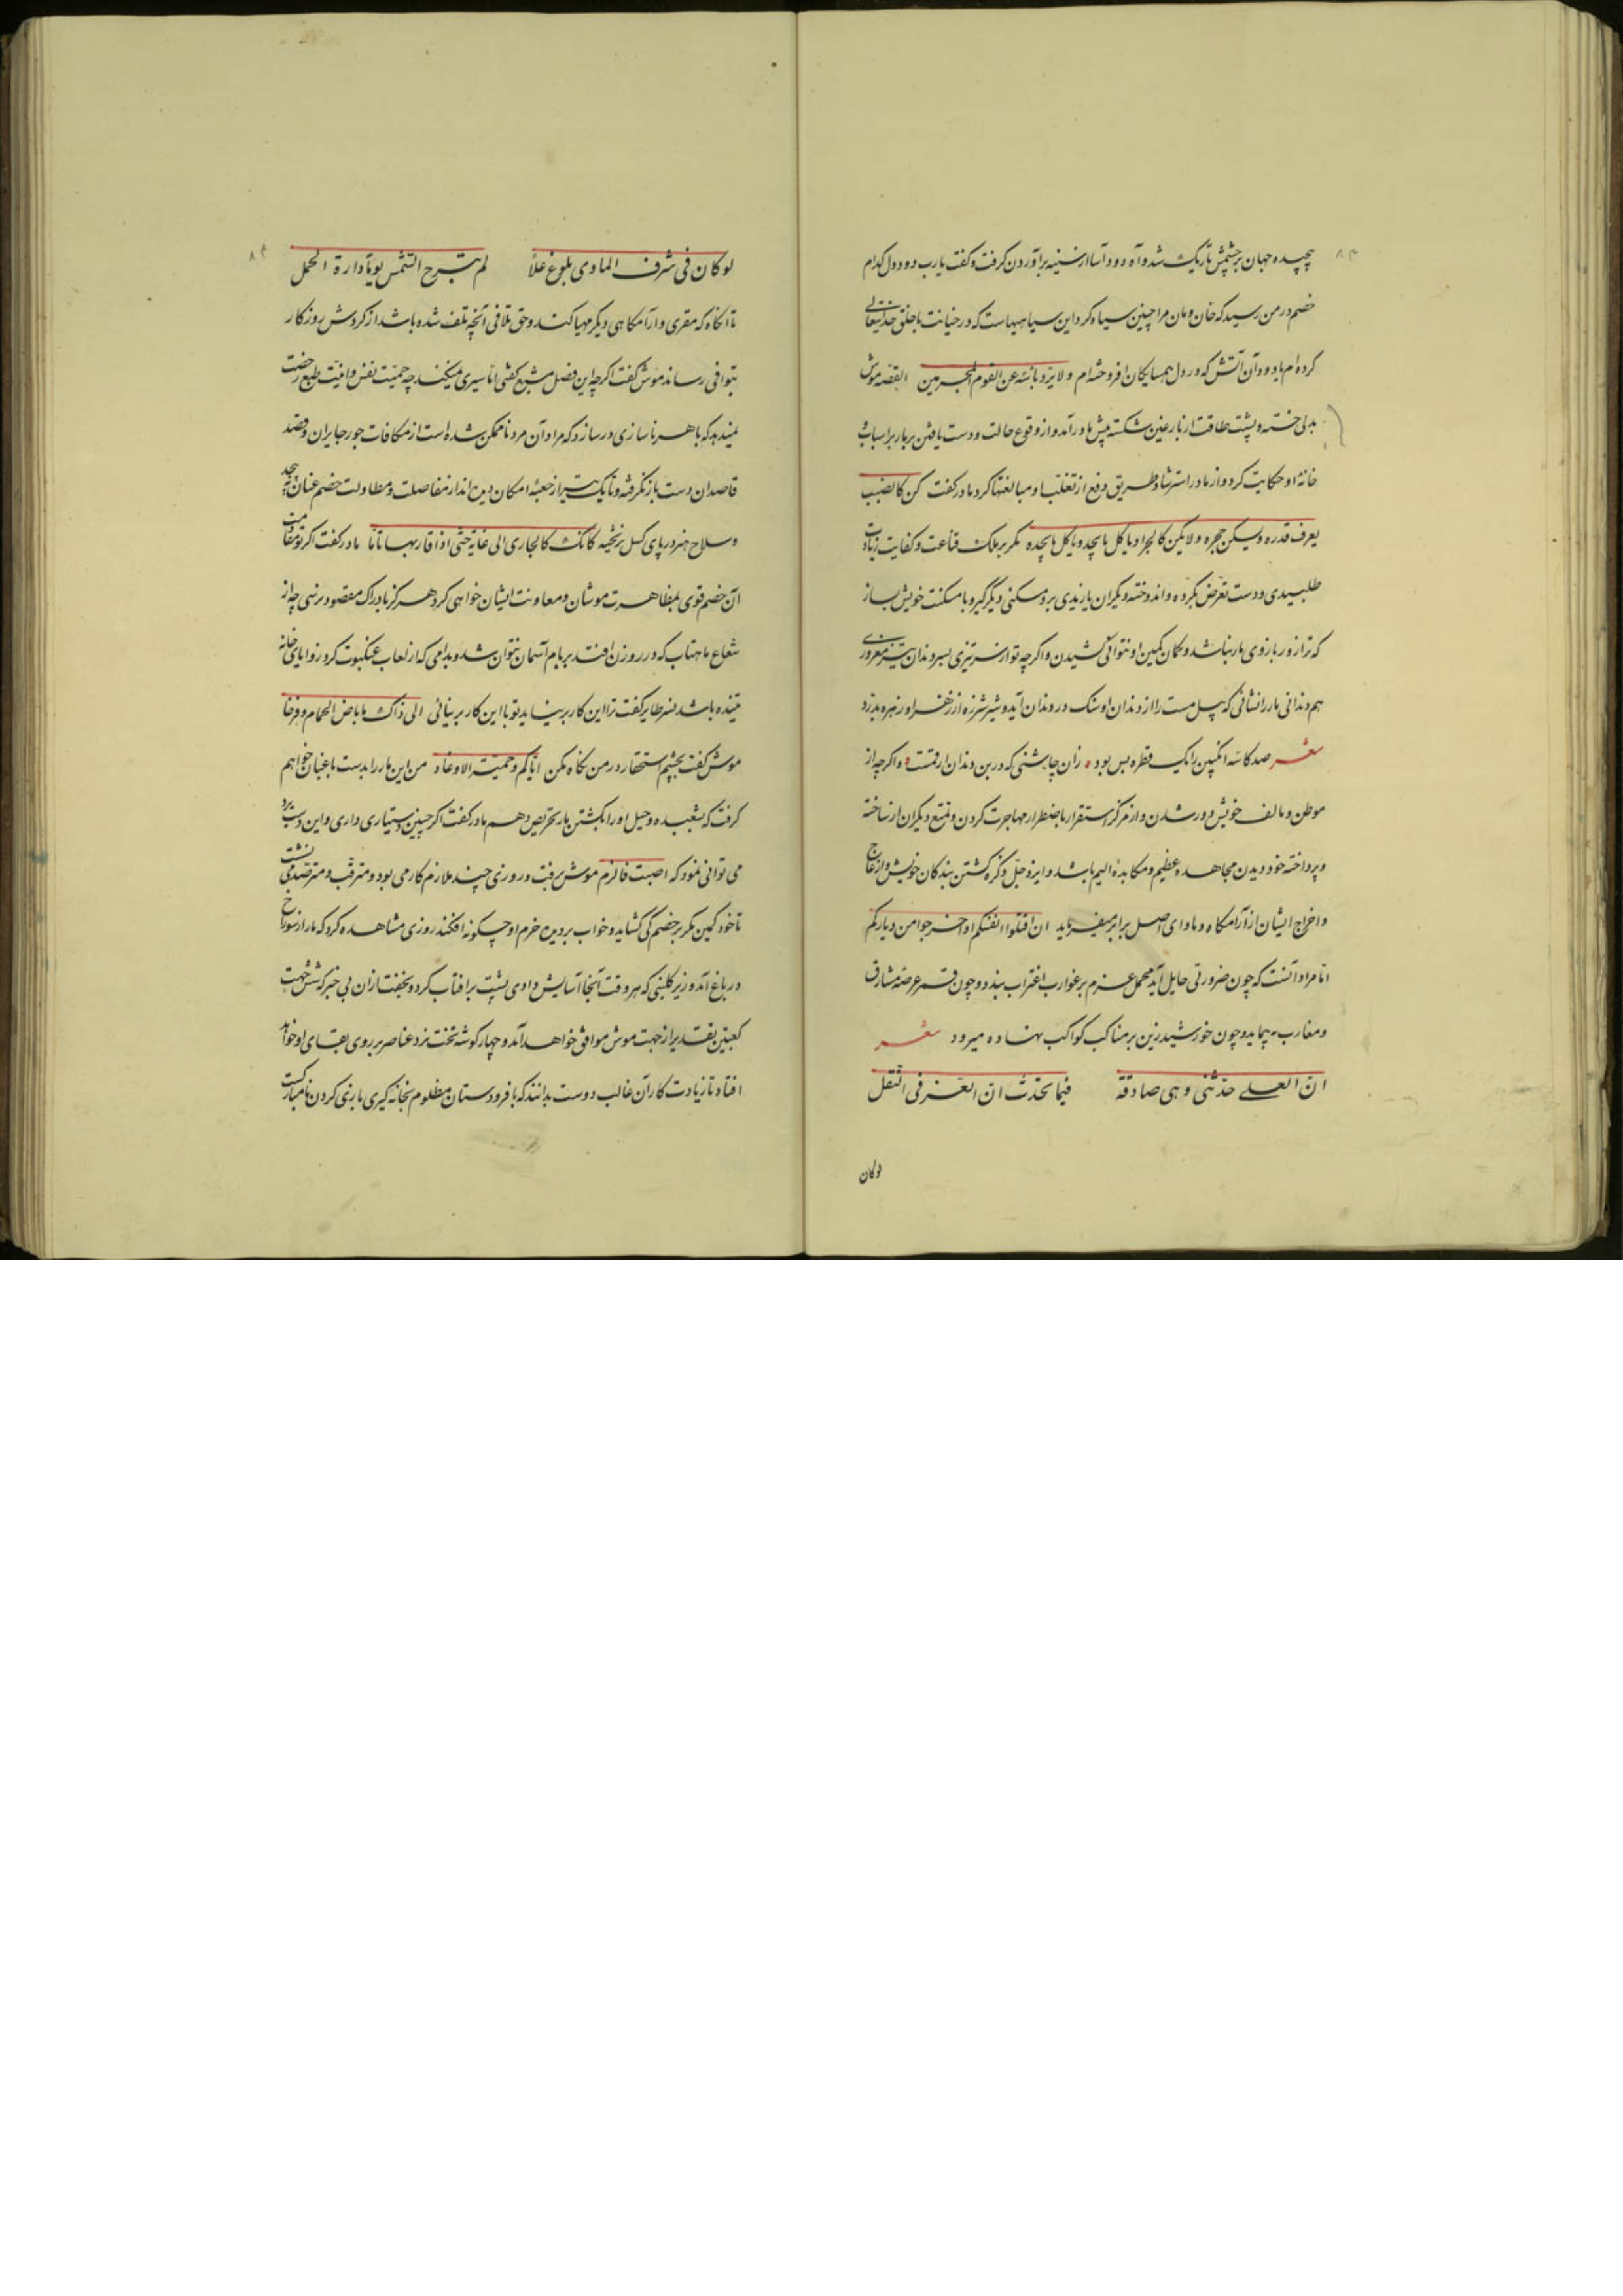 پیچیده جهان بر چشمش تاریک شد و آه دود آسا از سینه برآوردن کرفت و کفت یارب دود دل کدام
خصم در من رسید که خان و مان مرا چنین سیاه کرد این سیاهیهاست که در خیانت با خلق خدایتعالی
کرده‌ام یا دود آن آتش که در دل همسایکان افروخته‌ام ولا یرد بأسه عن القوم المجرمین القصه موش
بدلی خسته و پشت طاقت از بار غبن شکسته پیش مادر آمد و از وقوع حالت و دست یافتن مار بر اسباب
خانه او حکایت کرد و از مادر استرشاد طریق دفع از تغلب او مبالغتها کرد مادر کفت کن کالضب
یعرف قدره ویسکن جحره ولا یکن کالجراد یاکل مایجد ویاکل مایجده مکر بر ملک قناعت و کفایت زیادت
طلبیدی و دست تعرض بکرده و اندوخته دیکران یازیدی برو مسکنی دیکر کیر و با مسکنت خویش بساز
که ترا زور بازوی مار نباشد و کمان کمین او نتوانی کشیدن و اکرچه تو از سر تیزی بسر دندان تیز مغروری
هم دندانی مار را نشانی که پیل مست را از دندان او سنک در دندان آید و شیر شرزه را از زهر او زهره بدرد
شعر صد کاسه انکبین را یک قطره بس بود زان چاشنی که در بن دندان ارقمست و اکرچه از
موطن و مالف خویش دور شدن و از مرکز استقرار باضطرار مهاجرت کردن و تمتع دیکران از ساخته
و پرداخته خود دیدن مجاهده عظیم و مکابدهٔ الیم باشد و ایزد جل ذکره کشتن بندکان خویش و ازعاج
و اخراج ایشان از آرامکاه و ماوای اصل برابر میفرماید ان اقتلوا انفسکم او اخرجوا من دیارکم
اما مراد آنست که چون ضرورتی حایل آید محمل عزم بر غوارب اغتراب ببندد و چون قمر عرضه مشارق
و مغارب بپیماید و چون خورشید زین بر مناکب کواکب نهاده میرود شعر
ان العلی حدثتنی وهی صادقة فیما تحدث ان العز فی النقل
لوکان
لوکان فی شرف الماوی بلوغ علا لم تبرح الشمس یوما دارة الحمل
تا آنکاه که مقری و آرامکاهی دیکر مهیا کند و حق تلافی آنچه تلف شده باشد از کردش روزکار
بتوافی رساند موش کفت اکرچه این فصل مشبع کفتی اما سیری نمیکند چه حمیت نفس و ابیت طبع رخصت
نمیدهد که با هر ناسازی در سازد که مردان مرد ناممکن شده است از مکافات جور جایران و قصد
قاصدان دست باز نکرفته و تا یک تیر از جعبه امکان دارند از مناضلت و مطاولت خصم عنان نپیچند
و سلاح هنر در پای کسل نریخته کانک کالجاری الی غایة حتی اذا قاربها تانا مادر کفت اکر تو مقاومت
آن خصم قوی بمظاهرت موشان و معاونت ایشان خواهی کرد هرکز بادراک مقصود نرسی چه از
شعاع ماهتاب که در روزن افتد بر بام آسمان نتوان شد و بدامی که از لعاب عنکبوت کرد زوایای خانه
تنیده باشد نسر طایر کفت ترا این کار برنیاید تو با این کار برنیائی الی ذاک ما باض الحمام و فرخا
موش کفت بچشم استحقار در من نکاه مکن ایاکم وحمیة الاوغاد من این مار را بدست باغبان خواهم
کرفت که بشعبده و حیل او را بکشتن مار تحریض دهم مادر کفت اکر چنین دستیاری داری و این دستبرد
می توانی نمود که اصبت فالزم موش برفت و روزی چند ملازم کار می بود و مترقب و مترصد می نشست
تا خود کمین مکر بر خصم کی کشاید و خواب بر دیده حزم او چکونه افکند روزی مشاهده کرد که مار از سوراخ
در باغ آمد و زیر کلبنی که هر وقت آنجا آسایش دادی پشت بر افتاب کرد و بخفت ازان بی خبر که شش جهت
کعبتین تقدیر از جهت موش موافق خواهد آمد و چهار کوشه تخت نرد عناصر بر روی بقای او خواهد
افتاد تا زیادت کاران غالب دوست بدانند که با فرودستان مظلوم بخانه کیری بازی کردن نامبارکست